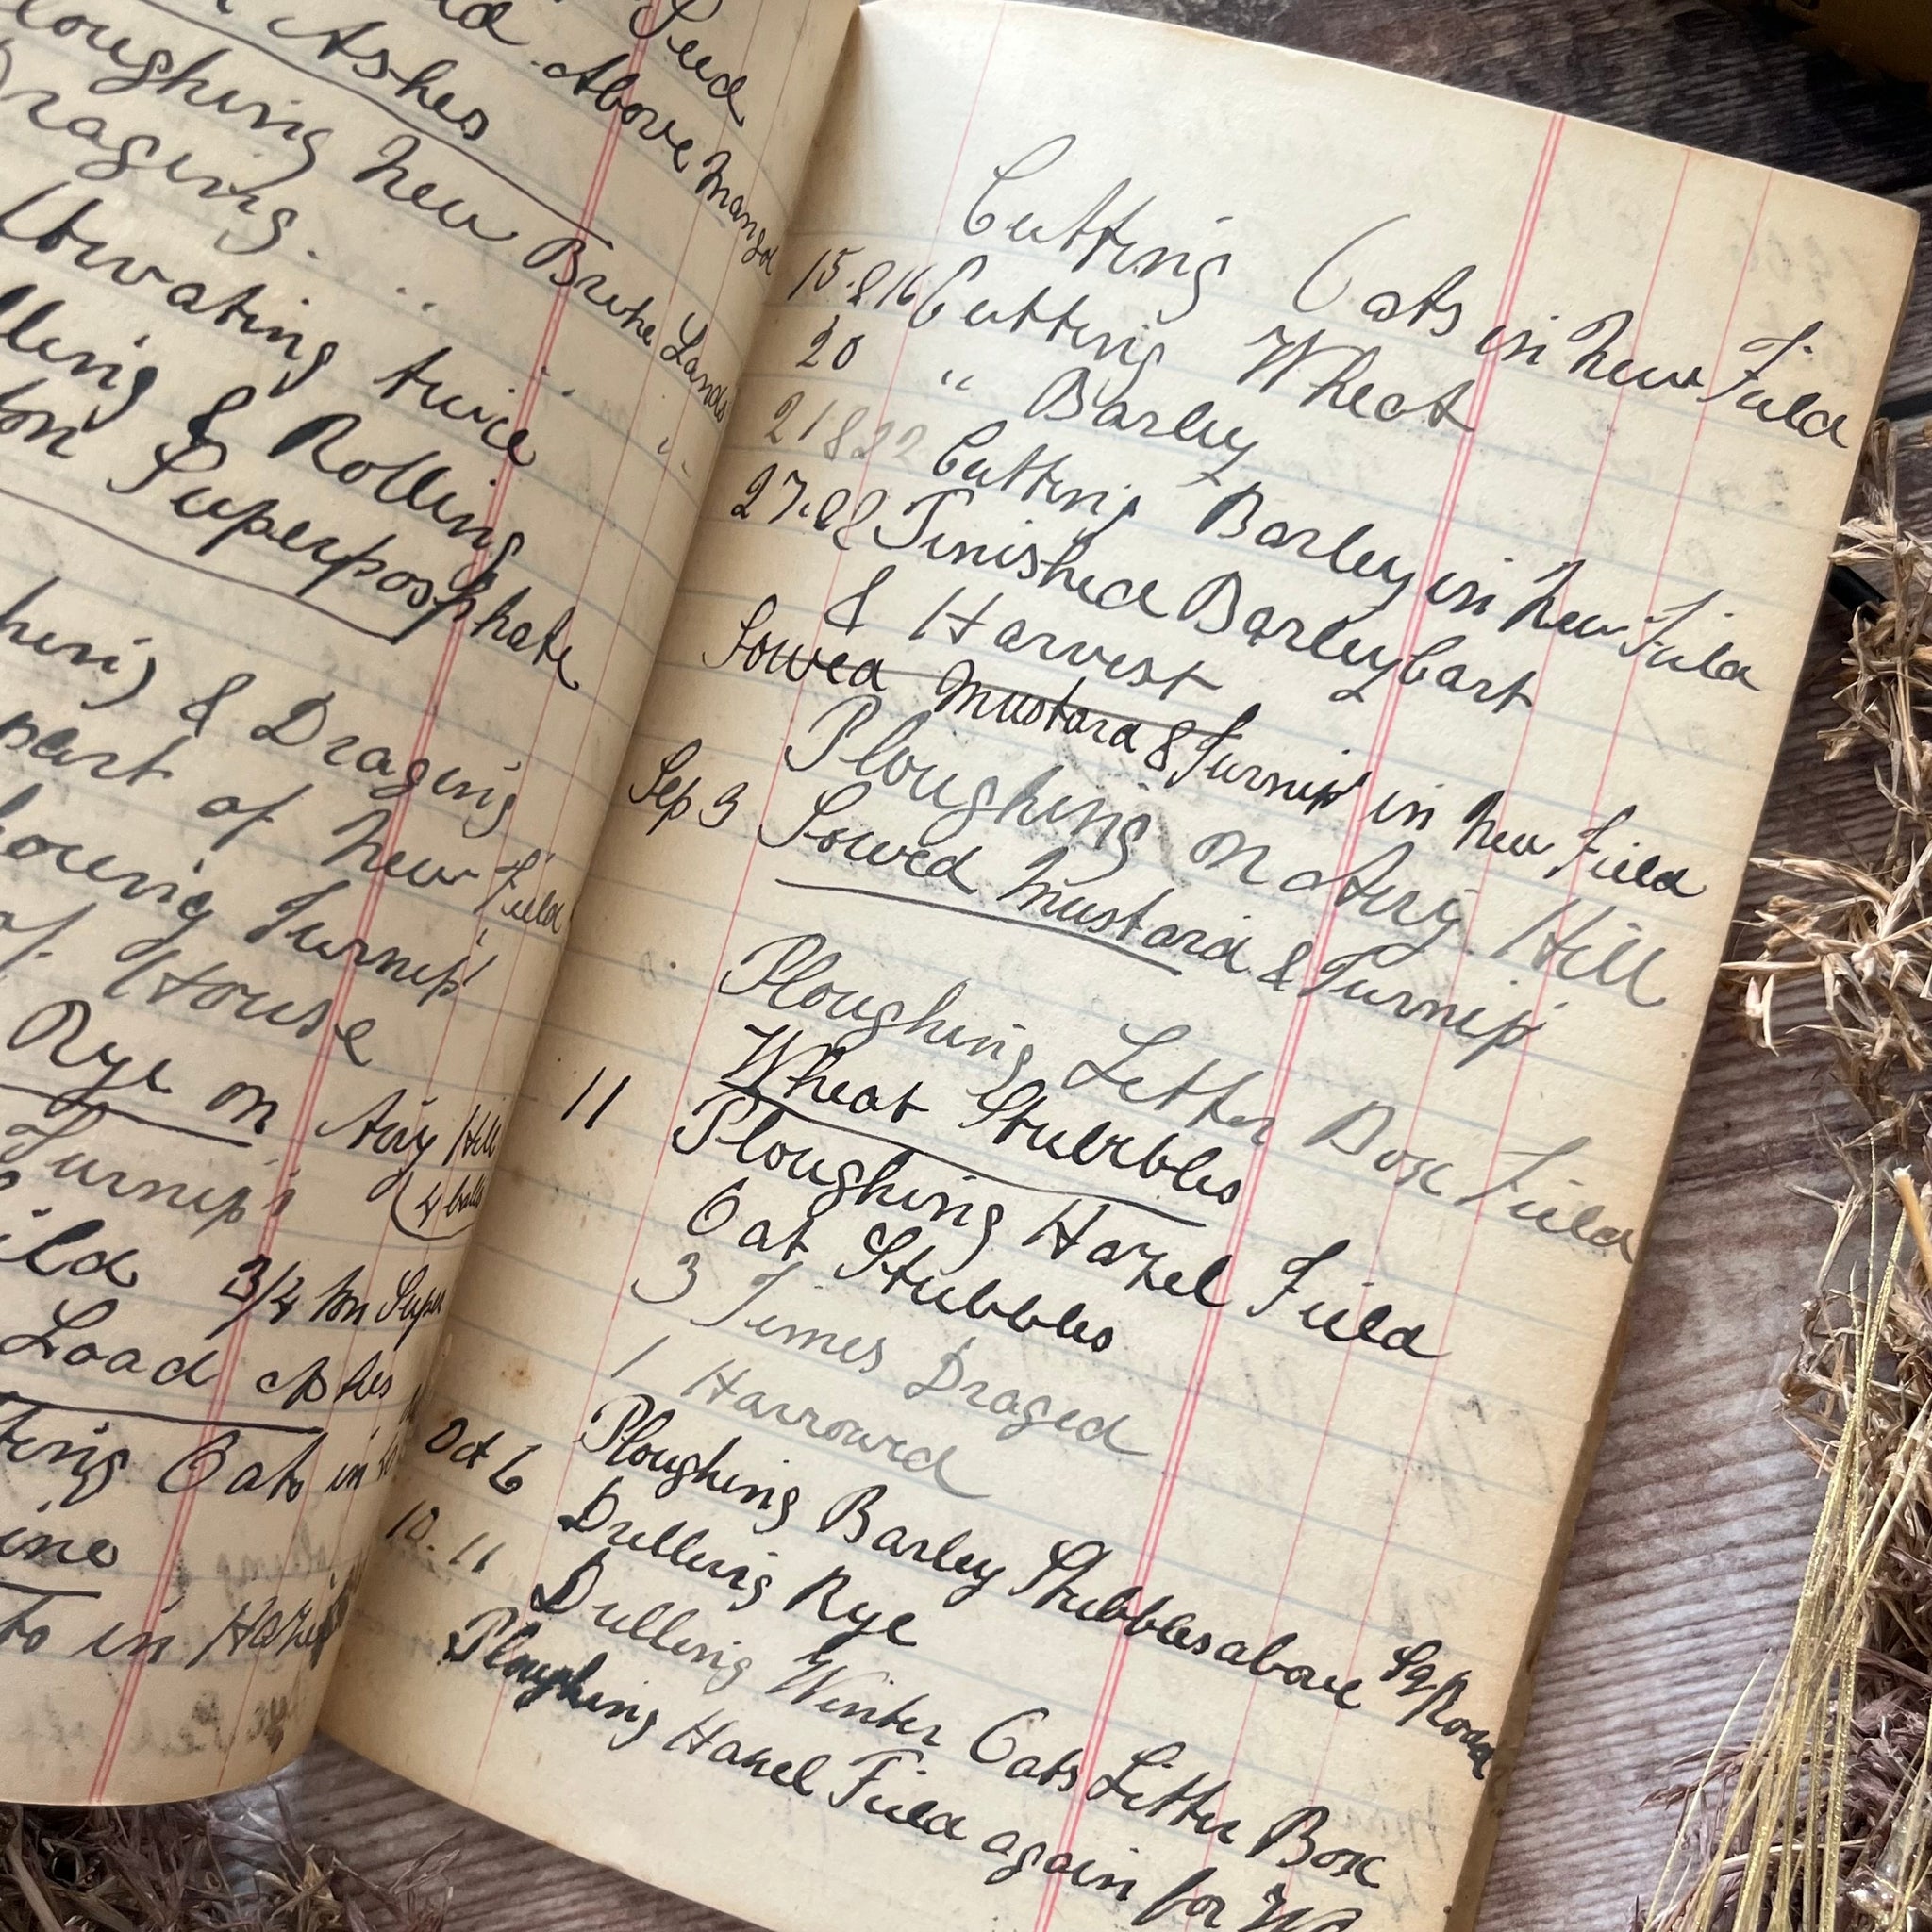 Seed
Above Mangol
Ashes
loughing New Broke Lands
Draging. " "
ltivating twice "
lling & Rolling
ton Superposphate
hing & Draging
part of New Field
houing Turnip's
of House
Rye on Airy Hill
Turnip's (4 balls
ild 3/4 ton Super
Load Ashes
ting Oats in
ine
to in Hazel
Cutting Oats in New Field
15 & 16 Cutting Wheat
20 " Barley
21 & 22 Cutting Barley in New Field
27.28 Finished Barley Cart
& Harvest
Sowed Mustard & Turnip's in New Field
Ploughing on Airy Hill
Sep 3 Sowed Mustard & Turnip's
Ploughing Letter Box Field
Wheat Stubbles
11 Ploughing Hazel Field
Oat Stubbles
3 Times Draged
1 Harrowed
Oct 6 Ploughing Barley Stubbles above Sq Road
10. 11 Drilling Rye
Drilling Winter Oats Letter Box
Ploughing Hazel Field again for